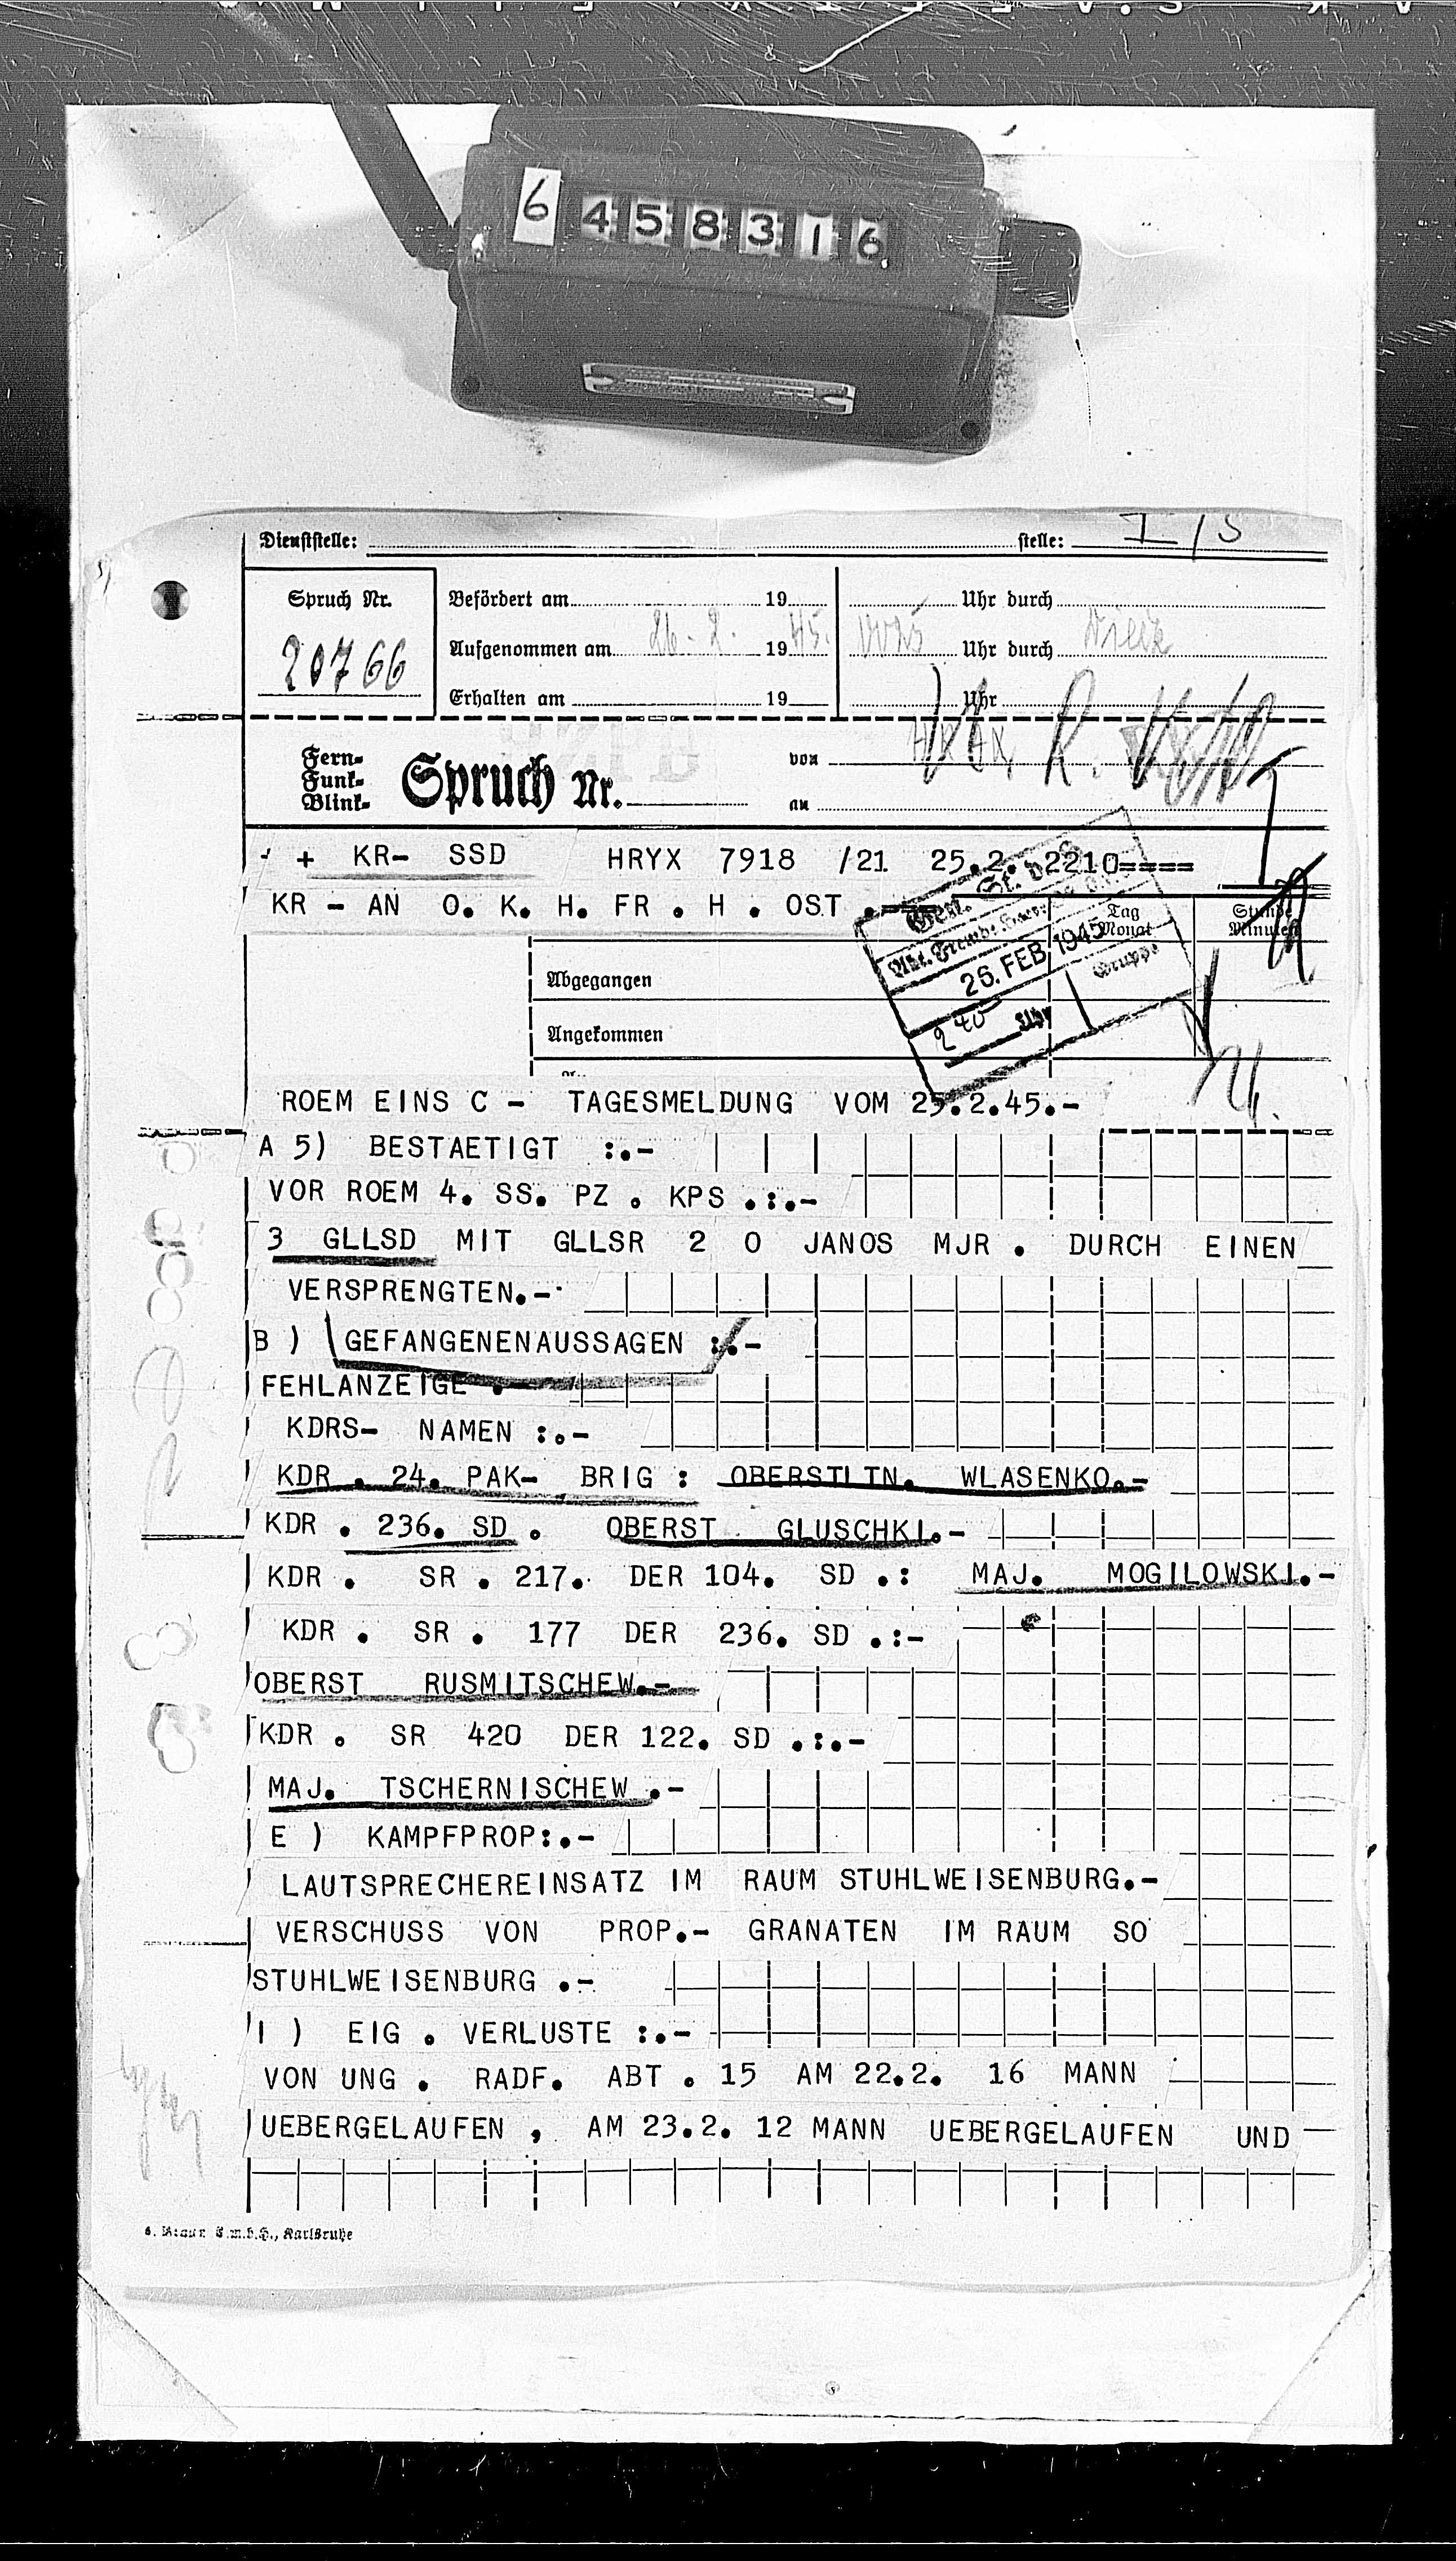 6 458316
Dienststelle: stelle: I/S
Spruch Nr.
20766
Befördert am 19 Uhr durch
Aufgenommen am 26.2. 1945. Uhr durch
Erhalten am 19 Uhr
Fern-
Funk-
Blink-
Spruch Nr.
von
an
+ KR- SSD HRYX 7918 /21 25.2. 2210====
KR - AN O. K. H. FR . H . OST .-
Gen. St. d. H.
Abt. Fremde Heere
26. FEB. 1945
Gruppe
240 Uhr
Tag
Monat
Stunde
Minuten
Abgegangen
Angekommen
ROEM EINS C - TAGESMELDUNG VOM 25.2.45.-
A 5) BESTAETIGT :.-
VOR ROEM 4. SS. PZ . KPS .:.-
3 GLLSD MIT GLLSR 2 0 JANOS MJR . DURCH EINEN
VERSPRENGTEN.-
B ) GEFANGENENAUSSAGEN :.-
FEHLANZEIGE .-
KDRS- NAMEN :.-
KDR . 24. PAK- BRIG : OBERSTLTN. WLASENKO.-
KDR . 236. SD . OBERST GLUSCHKI.-
KDR . SR . 217. DER 104. SD .: MAJ. MOGILOWSKI.-
KDR . SR . 177 DER 236. SD .:-
OBERST RUSMITSCHEW.-
KDR . SR 420 DER 122. SD .:.-
MAJ. TSCHERNISCHEW .-
E ) KAMPFPROP:.-
LAUTSPRECHEREINSATZ IM RAUM STUHLWEISENBURG.-
VERSCHUSS VON PROP.- GRANATEN IM RAUM SO
STUHLWEISENBURG .-
I ) EIG . VERLUSTE :.-
VON UNG . RADF. ABT . 15 AM 22.2. 16 MANN
UEBERGELAUFEN , AM 23.2. 12 MANN UEBERGELAUFEN UND
G.m.b.H., Karlsruhe